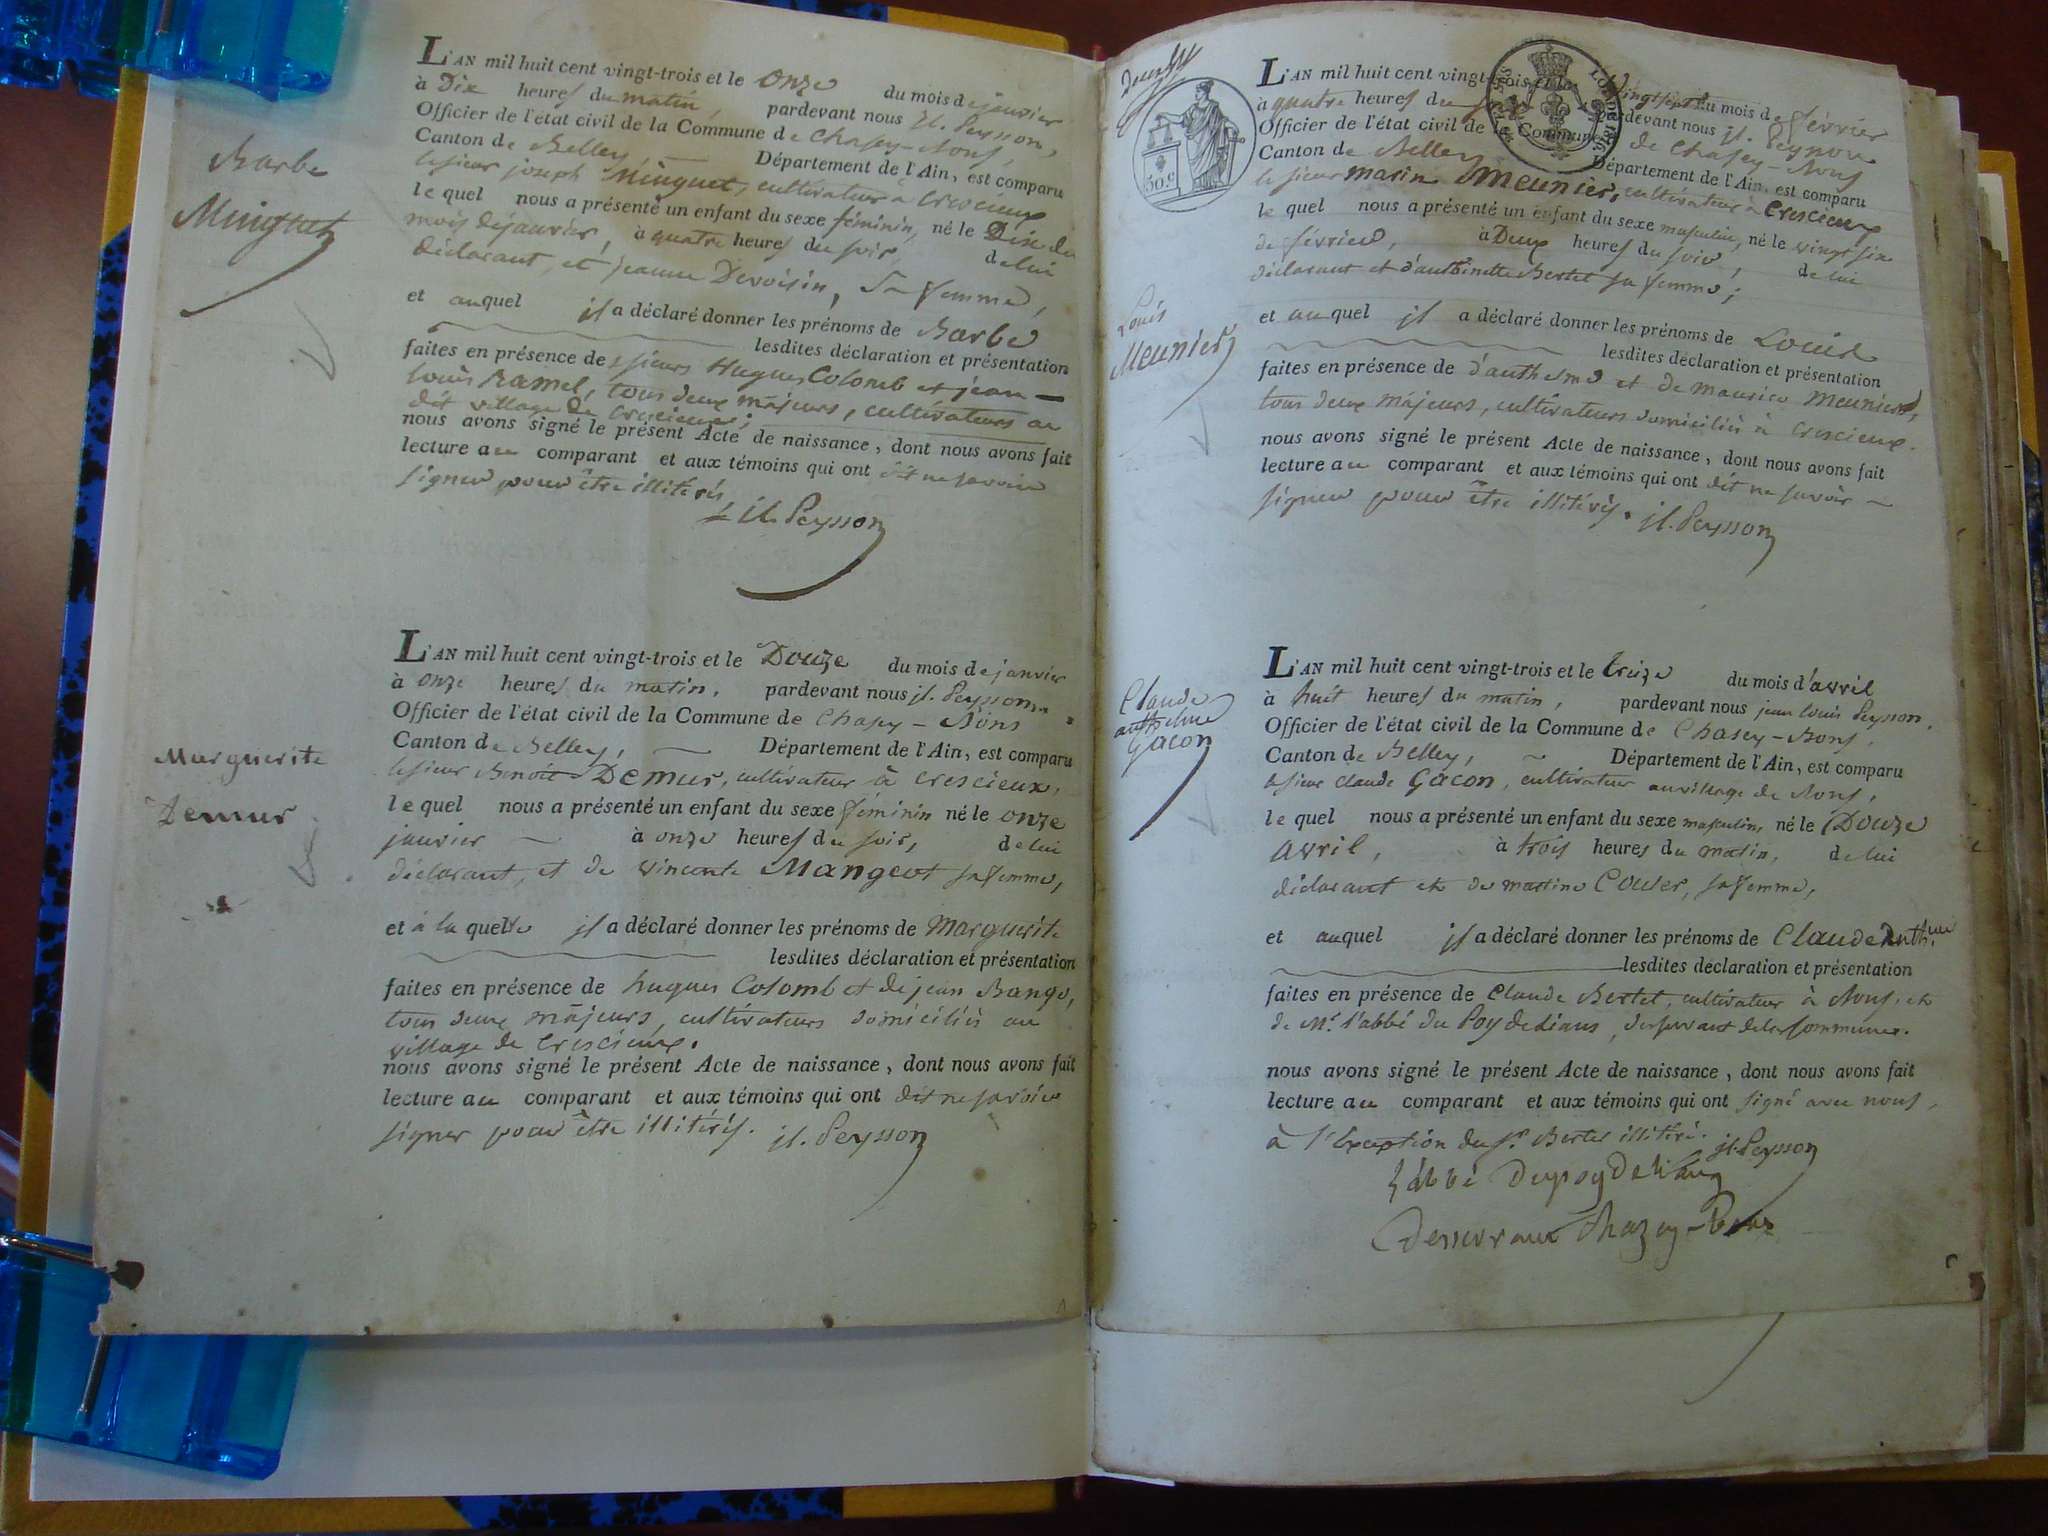 Barbe
Minguet
L'AN mil huit cent vingt-trois et le onze du mois de janvier
à Dix heures du matin, pardevant nous jl. Peysson,
Officier de l'état civil de la Commune de Chasey-Bons,
Canton de Belley Département de l'Ain, est comparu
le sieur joseph Minguet, cultivateur à Crescieux
le quel nous a présenté un enfant du sexe féminin, né le Dix du
mois de janvier, à quatre heures du soir, de lui
déclarant, et jeanne Devoisin, sa femme,
et auquel il a déclaré donner les prénoms de Barbe
lesdites déclaration et présentation
faites en présence de sieurs Hugues Colomb et jean
louis Ramel, tous deux majeurs, cultivateurs au
dit village de Crescieux;
nous avons signé le présent Acte de naissance, dont nous avons fait
lecture au comparant et aux témoins qui ont dit ne savoir
signer pour être illitérés
jl. Peysson
Marguerite
Demur
L'AN mil huit cent vingt-trois et le Douze du mois de janvier
à onze heures du matin, pardevant nous jl. Peysson
Officier de l'état civil de la Commune de Chasey-Bons
Canton de Belley, Département de l'Ain, est comparu
le sieur Benoit Demur, cultivateur à Crescieux,
le quel nous a présenté un enfant du sexe féminin né le onze
janvier à onze heures du soir, de lui
déclarant, et de vincente Mangeot sa femme,
et à la quelle il a déclaré donner les prénoms de Marguerite
lesdites déclaration et présentation
faites en présence de hugues Colomb et de jean Bange,
tous deux majeurs, cultivateurs domiciliés au
village de Crescieux.
nous avons signé le présent Acte de naissance, dont nous avons fait
lecture au comparant et aux témoins qui ont dit ne savoir
signer pour être illitérés. jl. Peysson
50 c
Louis
Meunier
L'AN mil huit cent vingt-trois et le vingt sept du mois de février
à quatre heures du soir pardevant nous jl. Peysson
Officier de l'état civil de la Commune de Chasey-Bons
Canton de Belley Département de l'Ain, est comparu
le sieur marin Meunier, cultivateur à Crescieux
le quel nous a présenté un enfant du sexe masculin, né le vingt six
de février, à Deux heures du soir, de lui
déclarant et d'anthelmette Bertet sa femme;
et au quel il a déclaré donner les prénoms de Louis
lesdites déclaration et présentation
faites en présence de d'anthelme et de maurice Meuniers,
tous deux majeurs, cultivateurs domiciliés à Crescieux.
nous avons signé le présent Acte de naissance, dont nous avons fait
lecture au comparant et aux témoins qui ont dit ne savoir
signer pour être illitérés. jl. Peysson
Claude
anthelme
Gacon
L'AN mil huit cent vingt-trois et le treize du mois d'avril
à huit heures du matin, pardevant nous jean louis Peysson,
Officier de l'état civil de la Commune de Chasey-Bons,
Canton de Belley, Département de l'Ain, est comparu
le sieur claude Gacon, cultivateur au village de Bons,
le quel nous a présenté un enfant du sexe masculin, né le Douze
avril, à trois heures du matin, de lui
déclarant et de martine Cower, sa femme,
et auquel il a déclaré donner les prénoms de Claude Anth.me
lesdites déclaration et présentation
faites en présence de Claude Bertet, cultivateur à Bons, et
de Mr. l'abbé du Poy de Lians, desservant de la Commune.
nous avons signé le présent Acte de naissance, dont nous avons fait
lecture au comparant et aux témoins qui ont signé avec nous,
à l'exception du sr. Bertet illitéré. jl. Peysson
L'abbé Dupoy de Lians
Desservant Chazey-Bons